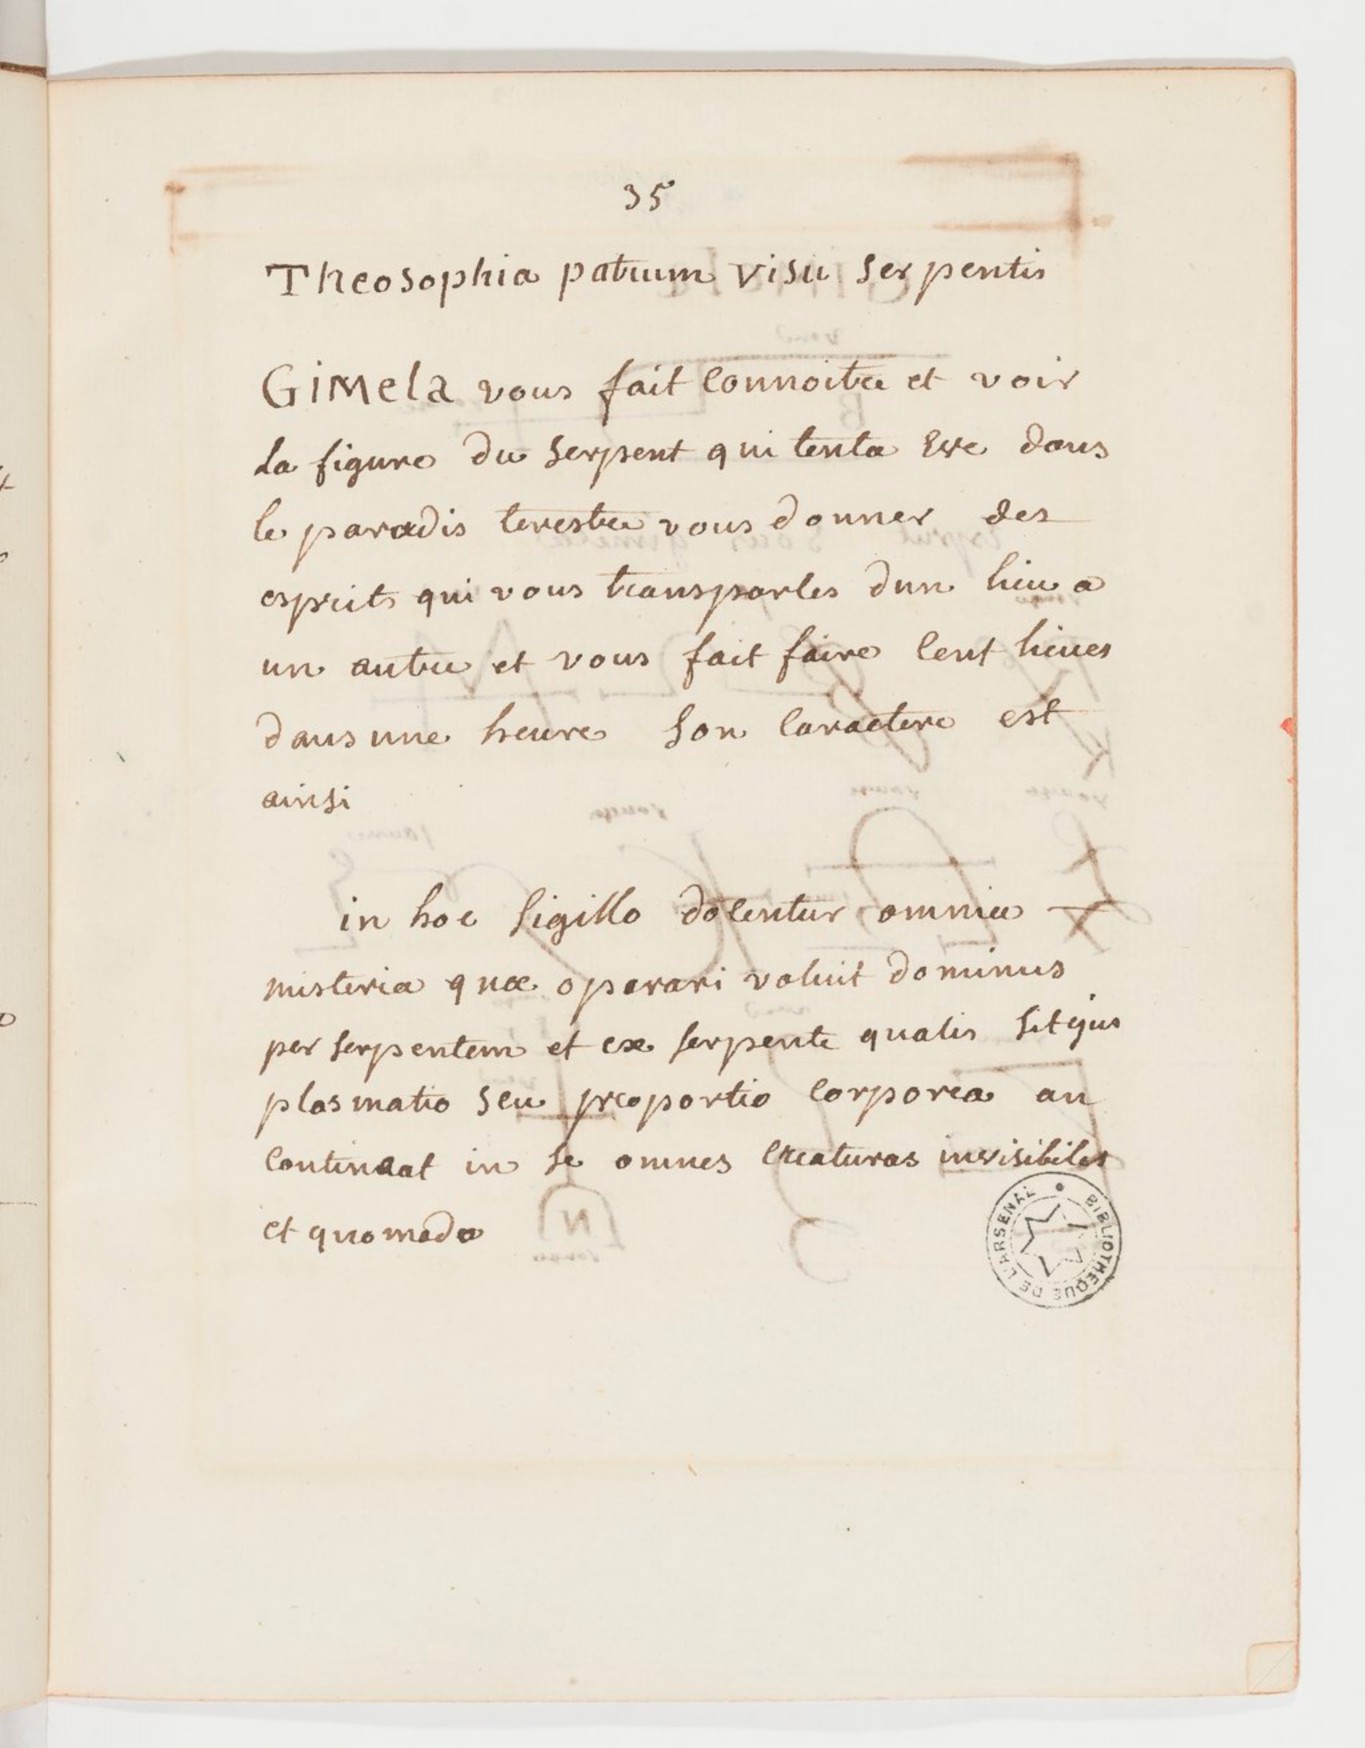 35
Theosophia patrum visu serpentis
GiMela vous fait connoitre et voir
la figure du serpent qui tenta Eve dans
le paradis terestre vous donner des
esprits qui vous transportes dun lieu a
un autre et vous fait faire cent lieues
dans une heure son caractere est
ainsi
in hoc sigillo docentur omnia
misteria quæ operari voluit dominus
per serpentem et ex serpente qualis sit ejus
plasmatio seu proportio corporea an
contineat in se omnes creaturas invisibiles
et quomodo
BIBLIOTHEQUE DE L'ARSENAL